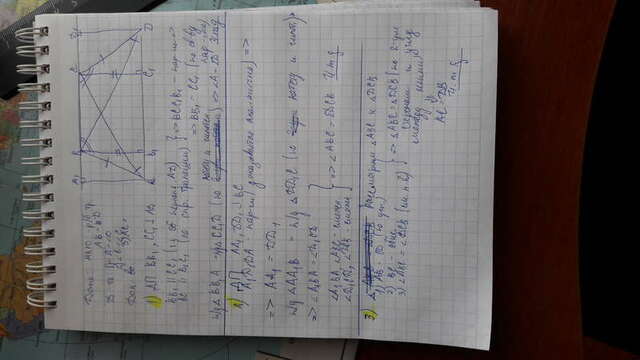 A₁ B C D₁
Дано: ABCD - р/б тр.
AB = CD
Д-ть: 1) ∠A = ∠D
2) ∠B = ∠C
3) AC =
Док-во:
A B₁ C₁ D
1) ДП BB₁, CC₁ ⊥ AD
BB₁ || CC₁ (
BC || B₁C₁ (по опр. трапеции)
=> BCC₁B₁ - пар-м =>
=> BB₁ = CC₁ (по св-ву пар-ма)
п/у Δ BB₁A = п/у Δ CC₁D (по катету и гипот.) => ∠A = ∠D
2) ДП AA₁, DD₁ ⊥ BC
A₁D₁DA - пар-м (доказывается аналогично) =>
=> AA₁ = DD₁
п/у ΔAA₁B = п/у ΔDD₁C (по катету и гипот) =>
=> ∠A₁BA = ∠D₁CD
∠A₁BA, ∠ABC - смежн
∠D₁CD, ∠DCB - смежн
=> ∠ABC = ∠DCB ч.т.д
3) Рассмотрим ΔABC и ΔDCB
1) AB = CD (по усл.)
2) BC - общ.
3) ∠ABC = ∠DCB (см. п. 2)
=> ΔABC = ΔDCB (по 2-ум сторонам и углу между ними)
AC = DB
ч.т.д